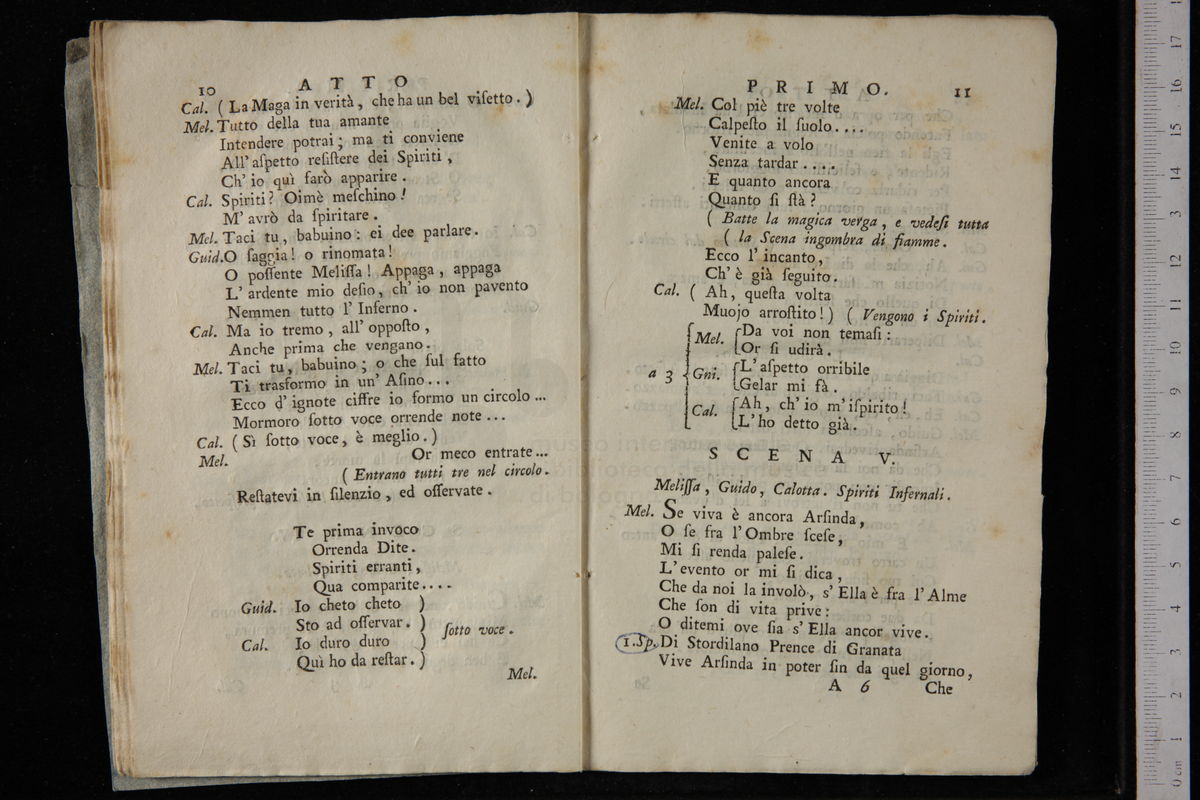 10 ATTO
Cal. ( La Maga in verità, che ha un bel viſetto. )
Mel. Tutto della tua amante
Intendere potrai; ma ti conviene
All' aſpetto reſiſtere dei Spiriti,
Ch' io quì farò apparire.
Cal. Spiriti? Oimè meſchino!
M' avrò da ſpiritare.
Mel. Taci tu, babuino: ei dee parlare.
Guid. O ſaggia! o rinomata!
O poſſente Meliſſa! Appaga, appaga
L' ardente mio deſio, ch' io non pavento
Nemmen tutto l' Inferno.
Cal. Ma io tremo, all' oppoſto,
Anche prima che vengano.
Mel. Taci tu, babuino; o che ſul fatto
Ti trasformo in un' Aſino...
Ecco d' ignote ciffre io formo un circolo...
Mormoro ſotto voce orrende note...
Cal. ( Sì ſotto voce, è meglio. )
Mel. Or meco entrate...
( Entrano tutti tre nel circolo.
Reſtatevi in ſilenzio, ed oſſervate.
Te prima invoco
Orrenda Dite.
Spiriti erranti,
Qua comparite....
Guid. Io cheto cheto )
Sto ad oſſervar. )
ſotto voce.
Cal. Io duro duro )
Quì ho da reſtar. )
Mel.
PRIMO. 11
Mel. Col piè tre volte
Calpeſto il ſuolo....
Venite a volo
Senza tardar....
E quanto ancora
Quanto ſi ſtà?
( Batte la magica verga, e vedeſi tutta
( la Scena ingombra di fiamme.
Ecco l' incanto,
Ch' è già ſeguito.
Cal. ( Ah, queſta volta
Muojo arroſtito! ) ( Vengono i Spiriti.
Mel. Da voi non temaſi:
Or ſi udirà.
a 3 Gui. L' aſpetto orribile
Gelar mi fà.
Cal. Ah, ch' io m' iſpirito!
L' ho detto già.
SCENA V.
Meliſſa, Guido, Calotta. Spiriti Infernali.
Mel. Se viva è ancora Arſinda,
O ſe fra l' Ombre ſceſe,
Mi ſi renda paleſe.
L' evento or mi ſi dica,
Che da noi la involò, s' Ella è fra l' Alme
Che ſon di vita prive:
O ditemi ove ſia s' Ella ancor vive.
1. Sp. Di Stordilano Prence di Granata
Vive Arſinda in poter ſin da quel giorno,
A 6 Che
museo
biblioteca della musica
di bologna
0 cm 1 2 3 4 5 6 7 8 9 10 11 12 13 14 15 16 17